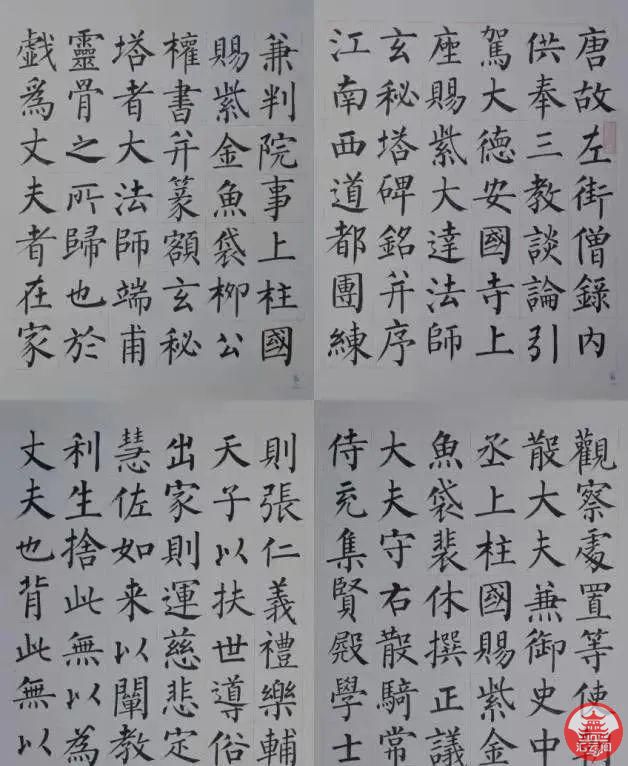 唐故左街僧錄內
供奉三教談論引
駕大德安國寺上
座賜紫大達法師
玄秘塔碑銘并序
江南西道都團練
觀察處置等使
散大夫兼御史中
丞上柱國賜紫金
魚袋裴休撰正議
大夫守右散騎常
侍充集賢殿學士
兼判院事上柱國
賜紫金魚袋柳公
權書并篆額玄秘
塔者大法師端甫
靈骨之所歸也於
戲爲丈夫者在家
則張仁義禮樂輔
天子以扶世導俗
出家則運慈悲定
慧佐如来以闡教
利生捨此無以為
丈夫也背此無以